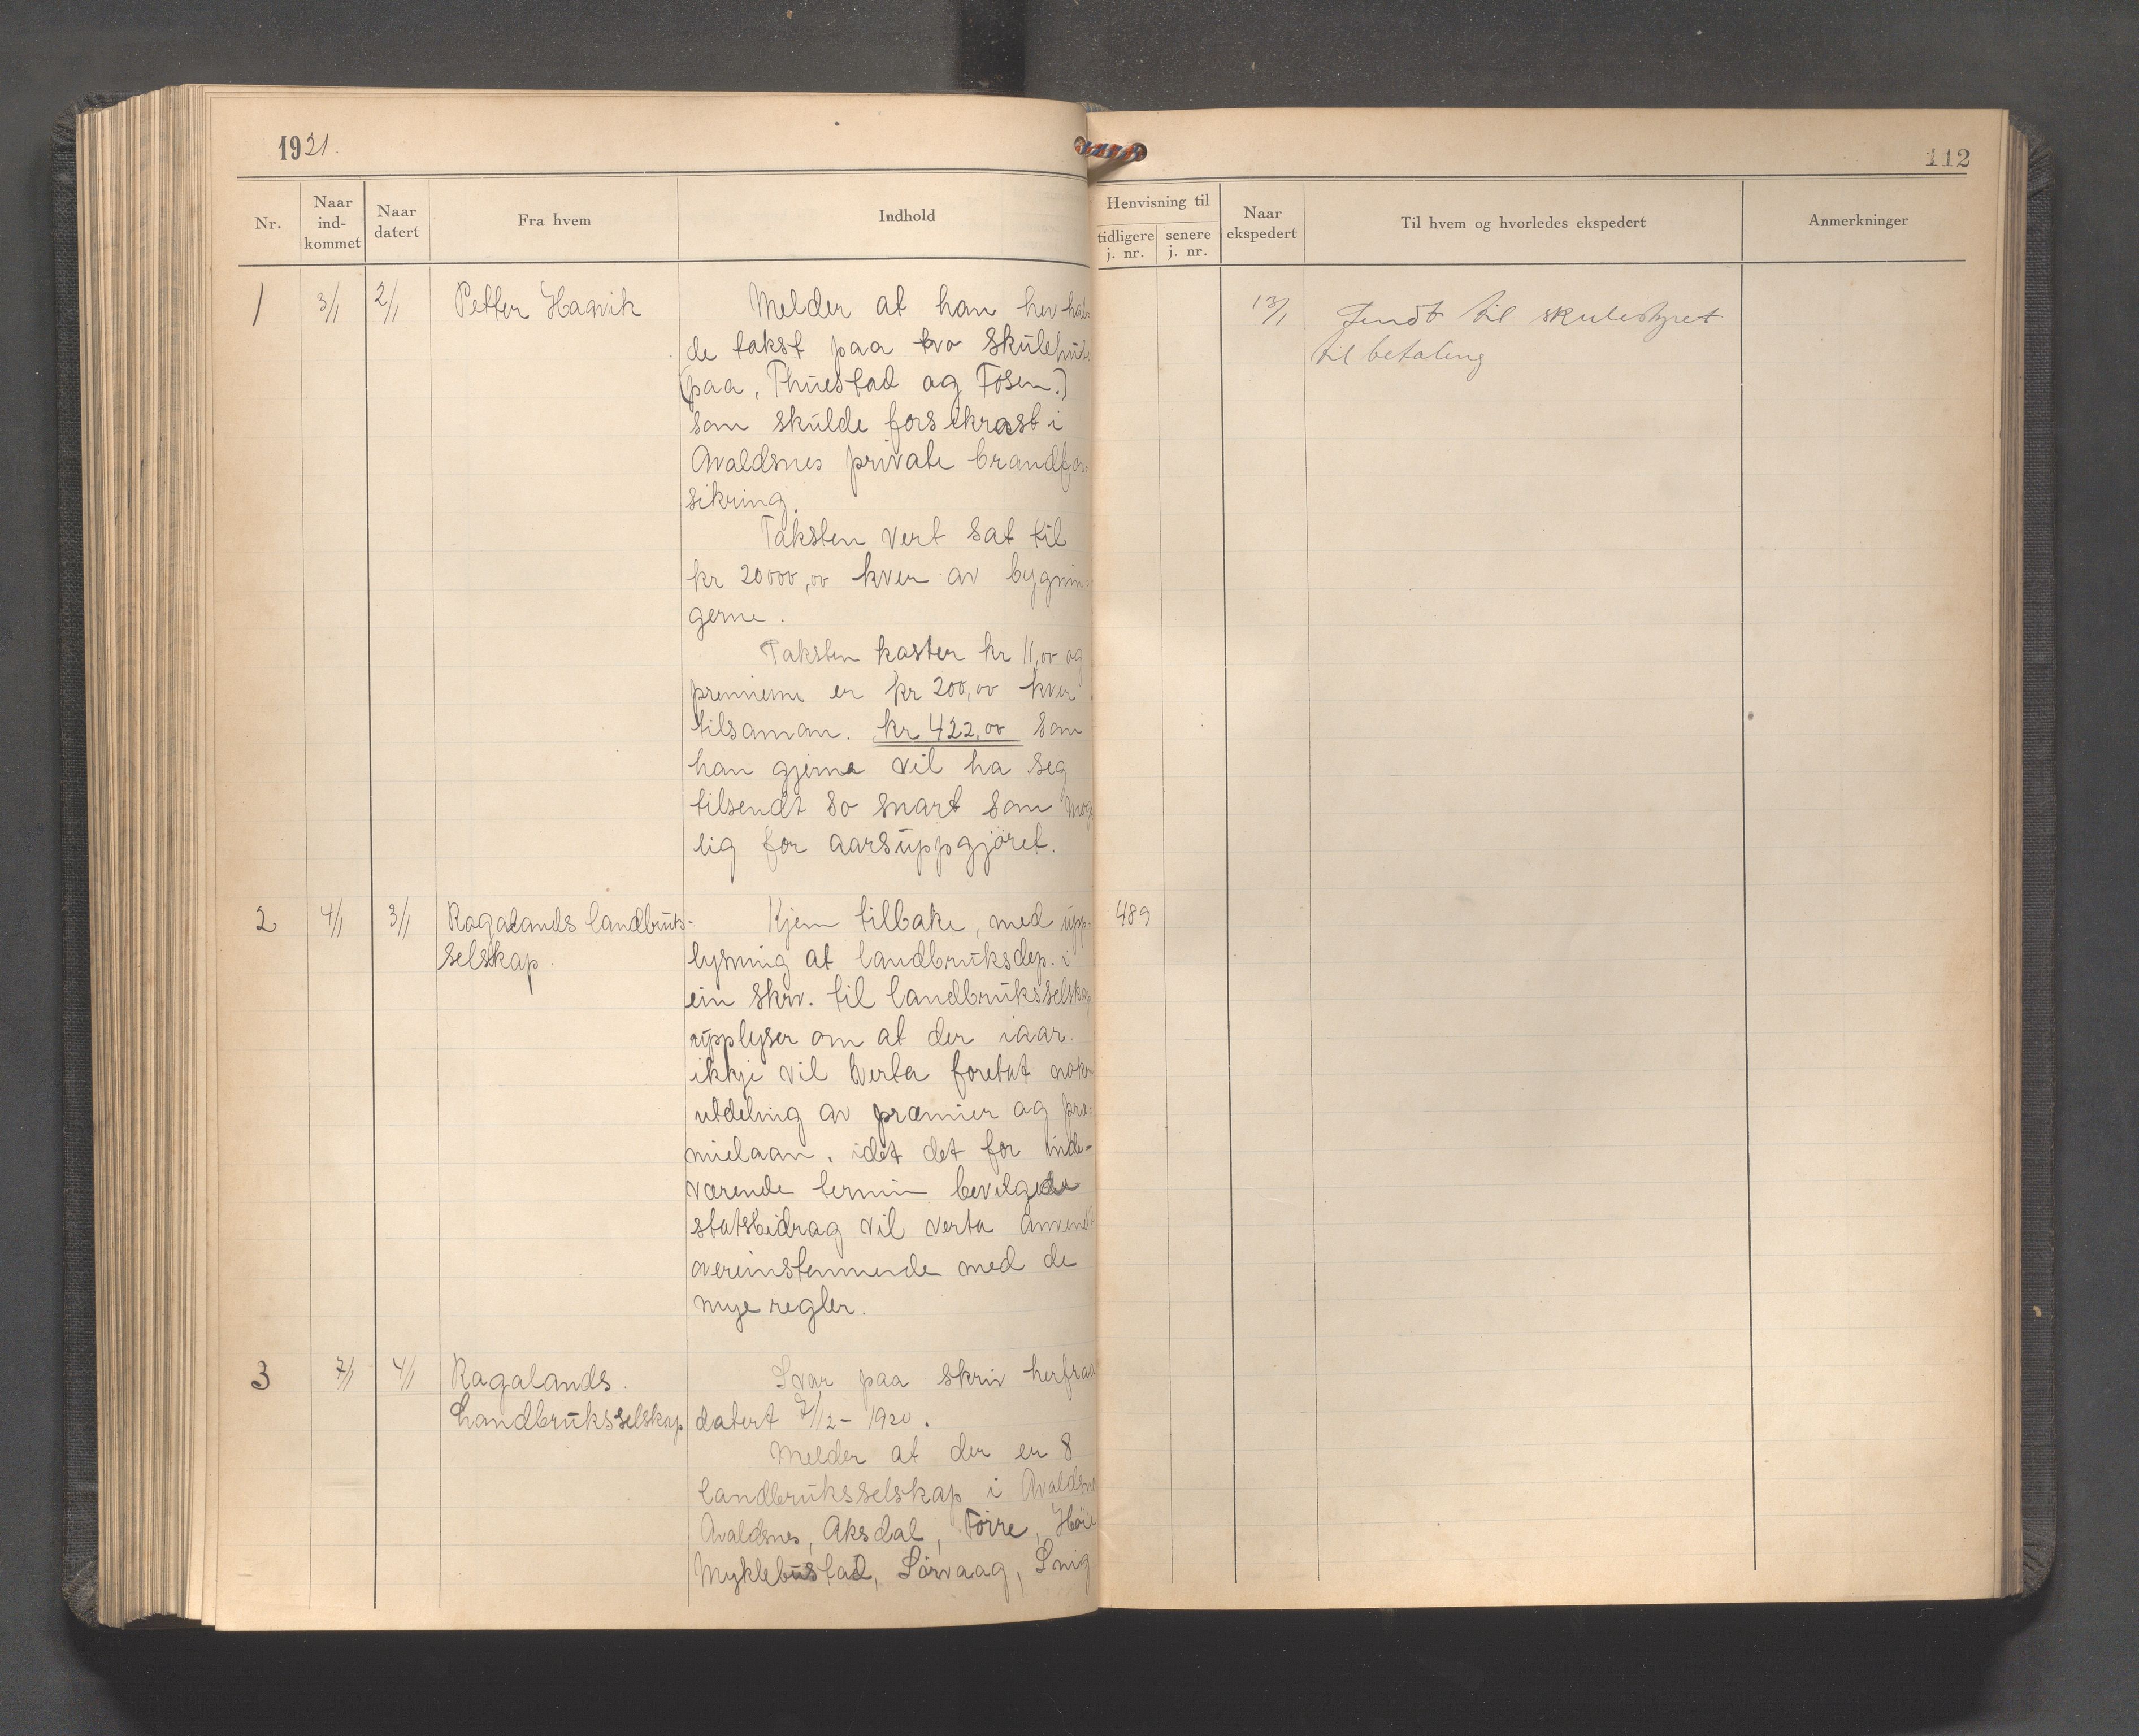 1921.
112
Nr.
Naar ind-kommet
Naar datert
Fra hvem
Indhold
Henvisning til
tidligere j. nr.
senere j. nr.
Naar ekspedert
Til hvem og hvorledes ekspedert
Anmerkninger
1 3/1 2/1 Petter Haavik
Melder at han hev hat=
de takst paa tvo skülehüs
(paa, Thuestad og Fosen.)
som skülde forsikrast i
Avaldsnes private brandfor=
sikring.
Taksten vert sat til
kr 20000,00 kver av bygnin=
gerne.
Taksten koster kr 11,00 og
premierne er kr 200,00 kver
tilsaman. kr 422,00 som
han gjerne vil ha seg
tilsendt so snart som mog
lig for aarsüppgjöret.
13/1 Sendt til skulestyret
til betaling
2 4/1 3/1 Rogalands landbrüks-
selskap.
Kjem tilbake, med üpp=
lysning at landbrüksdep. i
ein skrv. til landbrüksselskap
üpplyser om at der iaar
ikkje vil verta foretat noken
utdeling av præmier og præ=
mielaan, idet det for inde=
værende termin bevilgede
statsbidrag vil verta anvendt
overeinstemmende med de
nye regler.
489
3 7/1 4/1 Rogalands.
Landbrüksselskap
Svar paa skriv herfraa
datert 7/12 - 1920.
Melder at der er 8
landbrüksselskap i Avaldsnes
Avaldsnes, Aksdal, Förre,
Myklebüstad, Sörvaag,